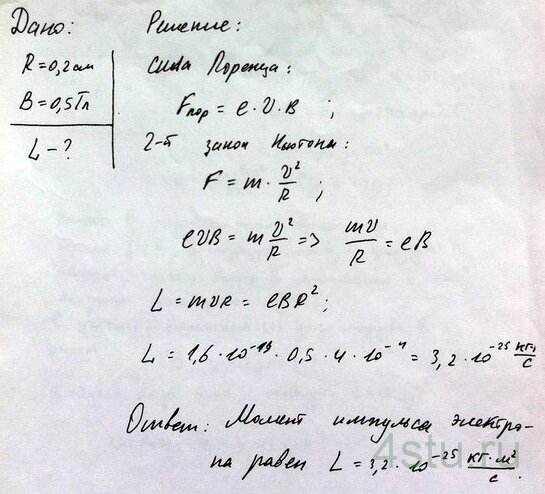 Дано:
R = 0,2 см
B = 0,5 Тл
L - ?
Решение:
Сила Лоренца:
Fлор = e · v · B ;
2-й закон Ньютона:
F = m · v²/R ;
evB = m v²/R => mv/R = eB
L = mvR = eBR²;
L = 1,6 · 10⁻¹⁹ · 0,5 · 4 · 10⁻⁴ = 3,2 · 10⁻²⁵ кг·/с
Ответ: Момент импульса электро-
на равен L = 3,2 · 10⁻²⁵ кг·м²/с.
4stu.ru